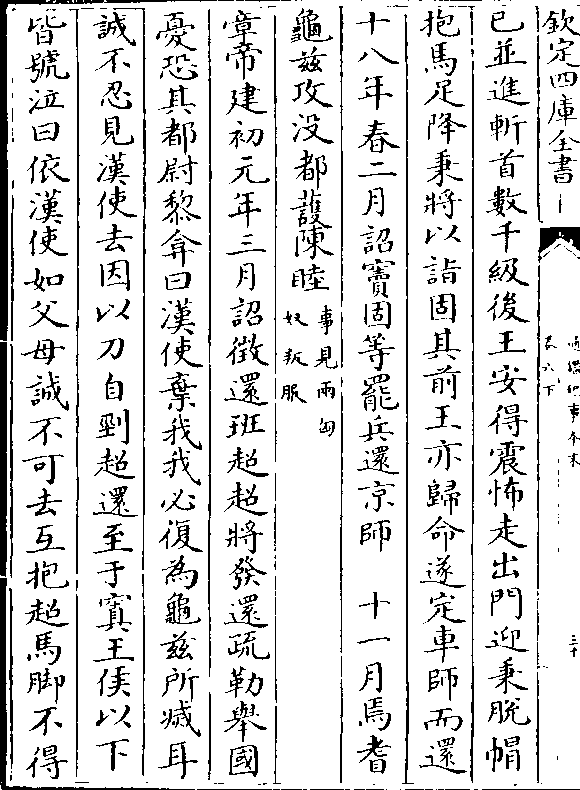 欽定四庫全書
通鑑紀事本末
卷六下
三十
已並進斬首數千級後王安得震怖走出門迎秉脫帽
抱馬足降秉將以詣固其前王亦歸命遂定車師而還
十八年春二月詔竇固等罷兵還京師 十一月焉耆
龜兹攻没都護陳睦事見兩匈
奴叛服
章帝建初元年三月詔徵還班超超將發還疏勒舉國
憂恐其都尉黎弇曰漢使棄我我必復為龜兹所滅耳
誠不忍見漢使去因以刀自剄超還至于窴王侯以下
皆號泣曰依漢使如父母誠不可去互抱超馬脚不得